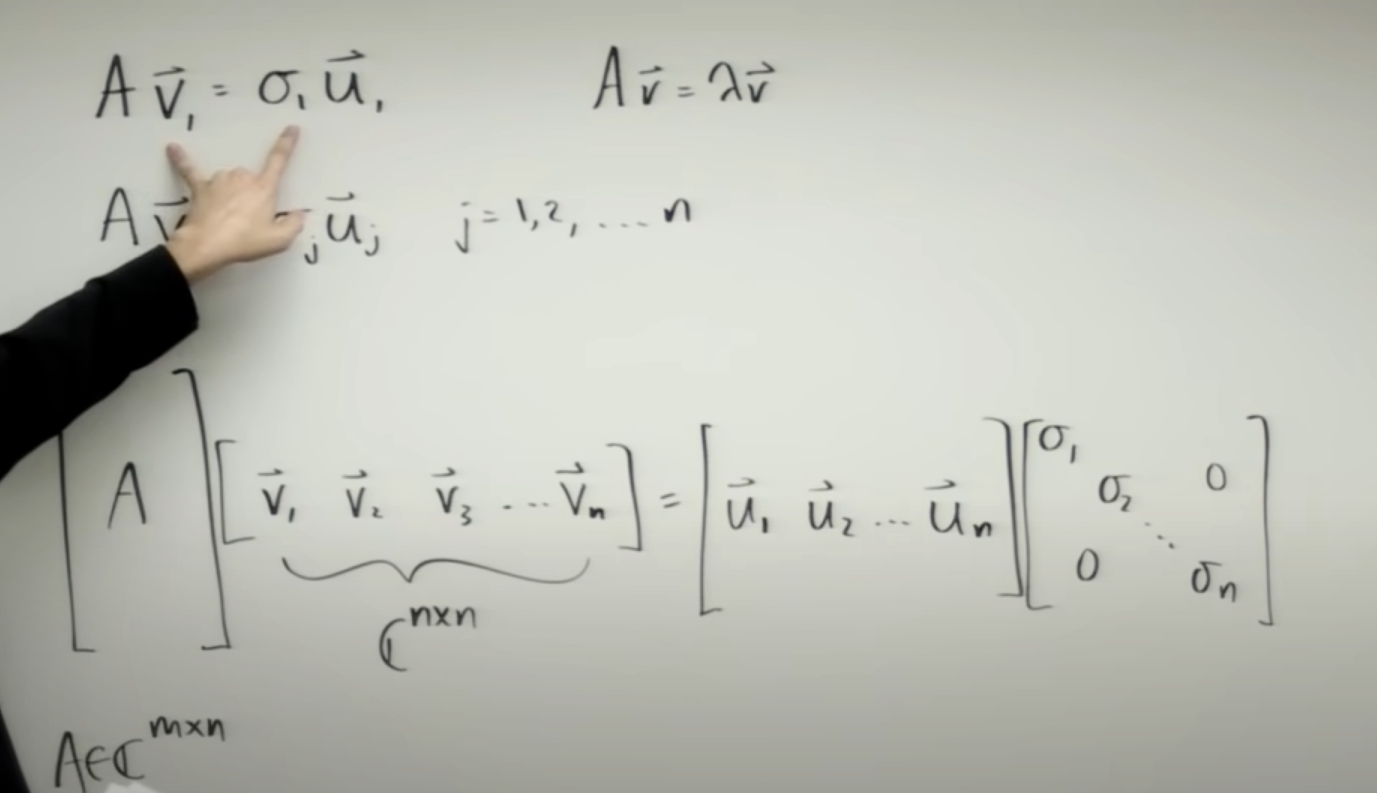 A v⃗₁ = σ₁ u⃗₁ A v⃗ = λ v⃗
A v⃗ ⱼ u⃗ⱼ j = 1,2, ... n
[ A ] [ v⃗₁ v⃗₂ v⃗₃ ... v⃗ₙ ] = [ u⃗₁ u⃗₂ ... u⃗ₙ ] [ σ₁ σ₂ ⋱ σₙ 0 0 ]
ℂⁿˣⁿ
A ∈ ℂᵐˣⁿ